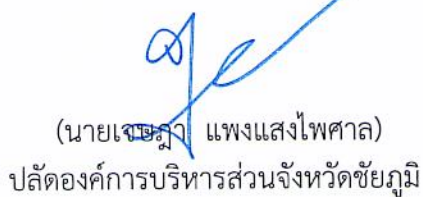 (นายเจษฎา แพงแสงไพศาล)
ปลัดองค์การบริหารส่วนจังหวัดชัยภูมิ